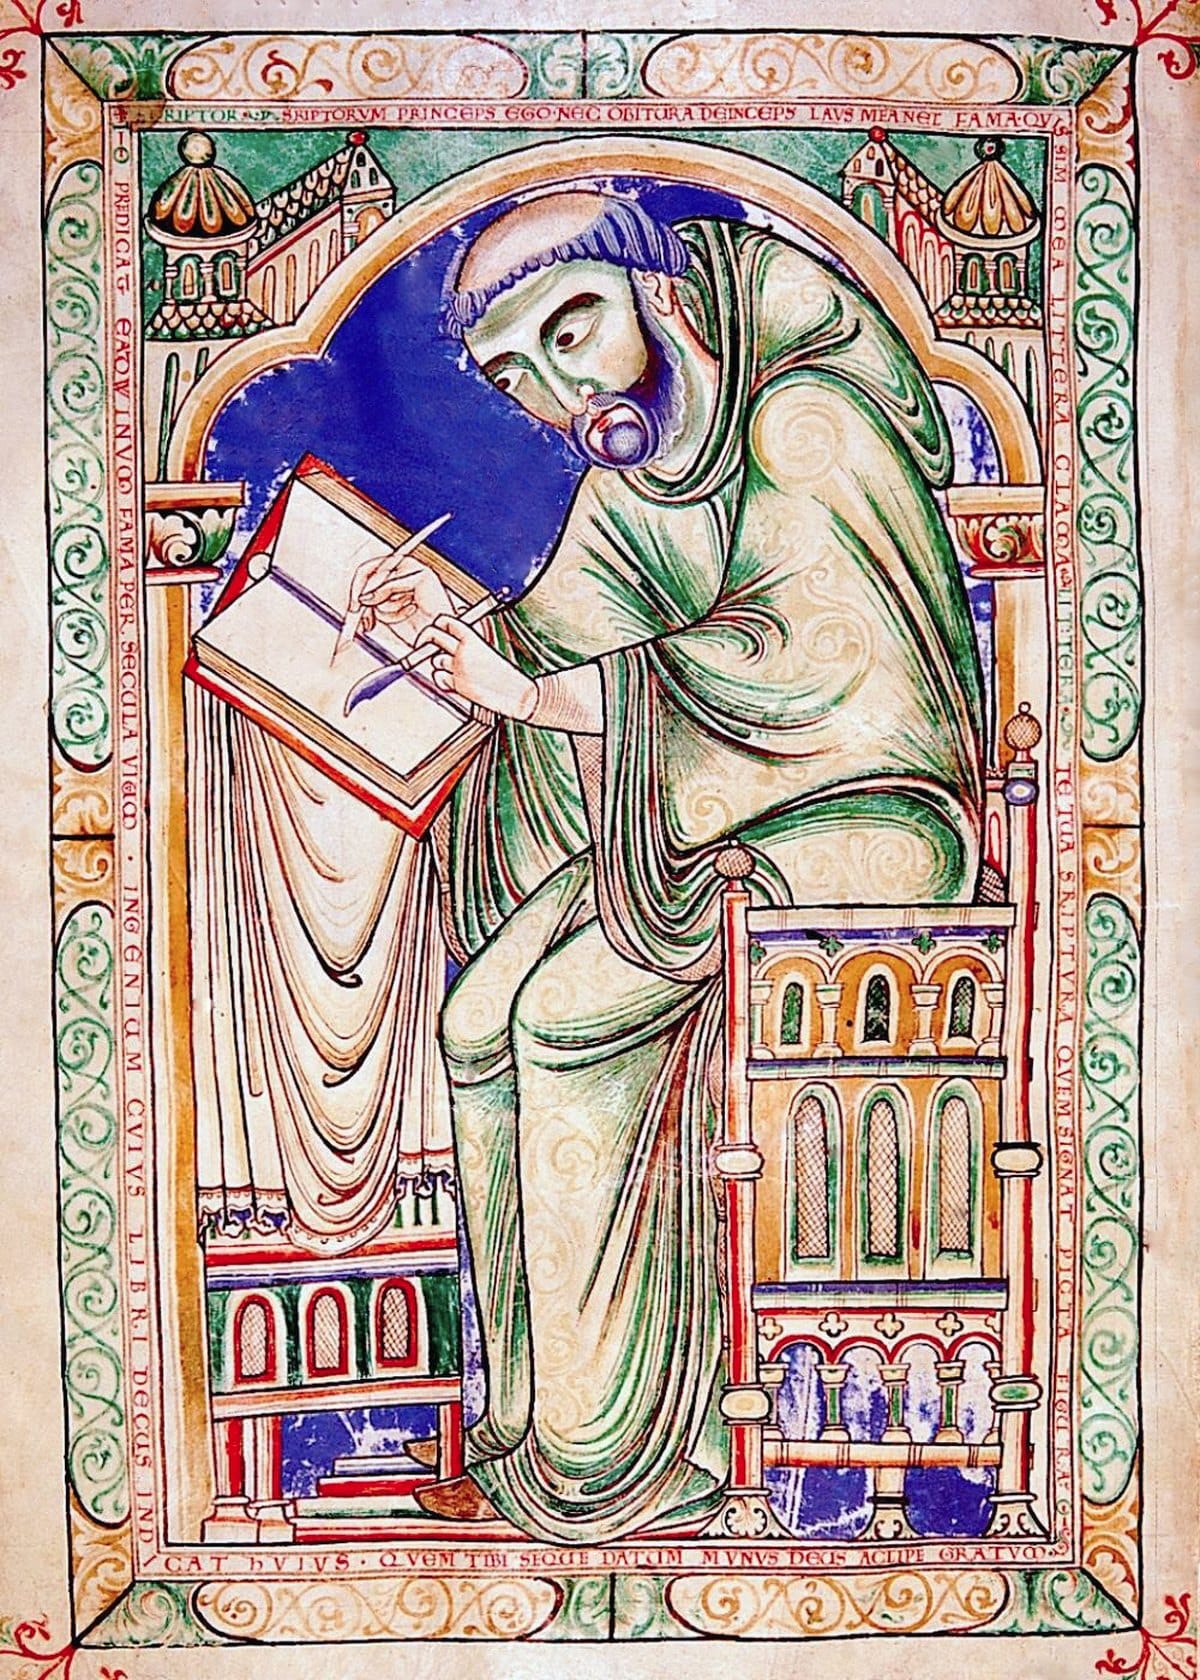 SRIPTORVM PRINCEPS EGO·NEC OBITURA DEINCEPS LAVS MEA NEC FAMA·QVI
S SIM MEA LITTERA TE TUA SRIPTVRA QVEM SIGNAT PICTA FIGURA
PREDICAT EADWINVM FAMA PER SECULA VIVUM · INGENIUM CVIVS LIBRI DECUS IND
ICAT HVIVS · QVEM TIBI SEQUE DATUM MVNUS DEUS ACCIPE GRATVM